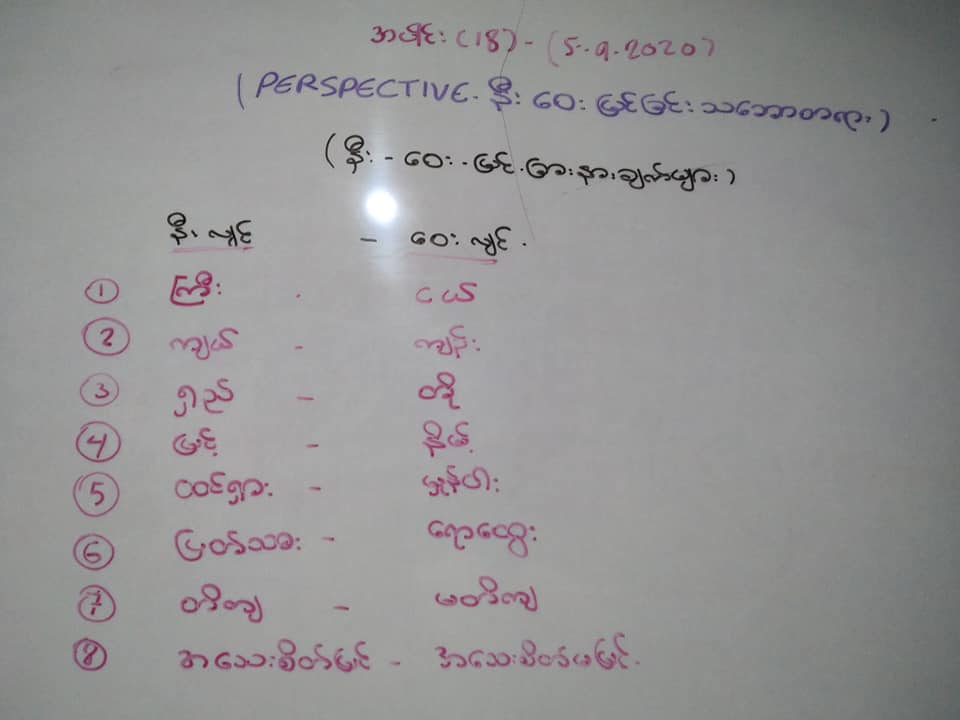 အပိုင်း (18) - (5.9.2020)
(PERSPECTIVE. နီး ဝေး မြင်ခြင်း သဘောတရား)
(နီး - ဝေး - မြင် ခြားနားချက်များ)
နီးလျှင် - ဝေးလျှင်.
① ကြီး - ငယ်
② ကျယ် - ကျဉ်း
③ ရှည် - တို
④ မြင့် - နိမ့်
⑤ ထင်ရှား - မှုန်ဝါး
⑥ ပြတ်သား - ရောထွေး
⑦ တိကျ - မတိကျ
⑧ အသေးစိတ်မြင် - အသေးစိတ်မမြင်.